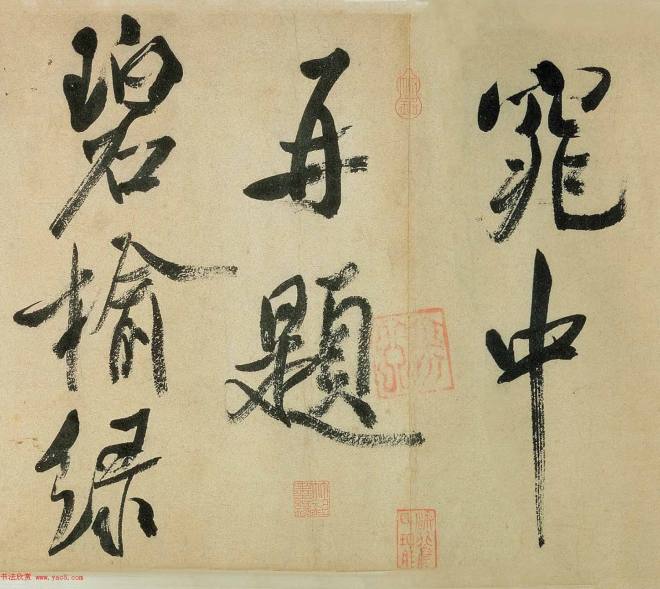 窕中
再題
碧榆綠
书法欣赏 www.yac8.com